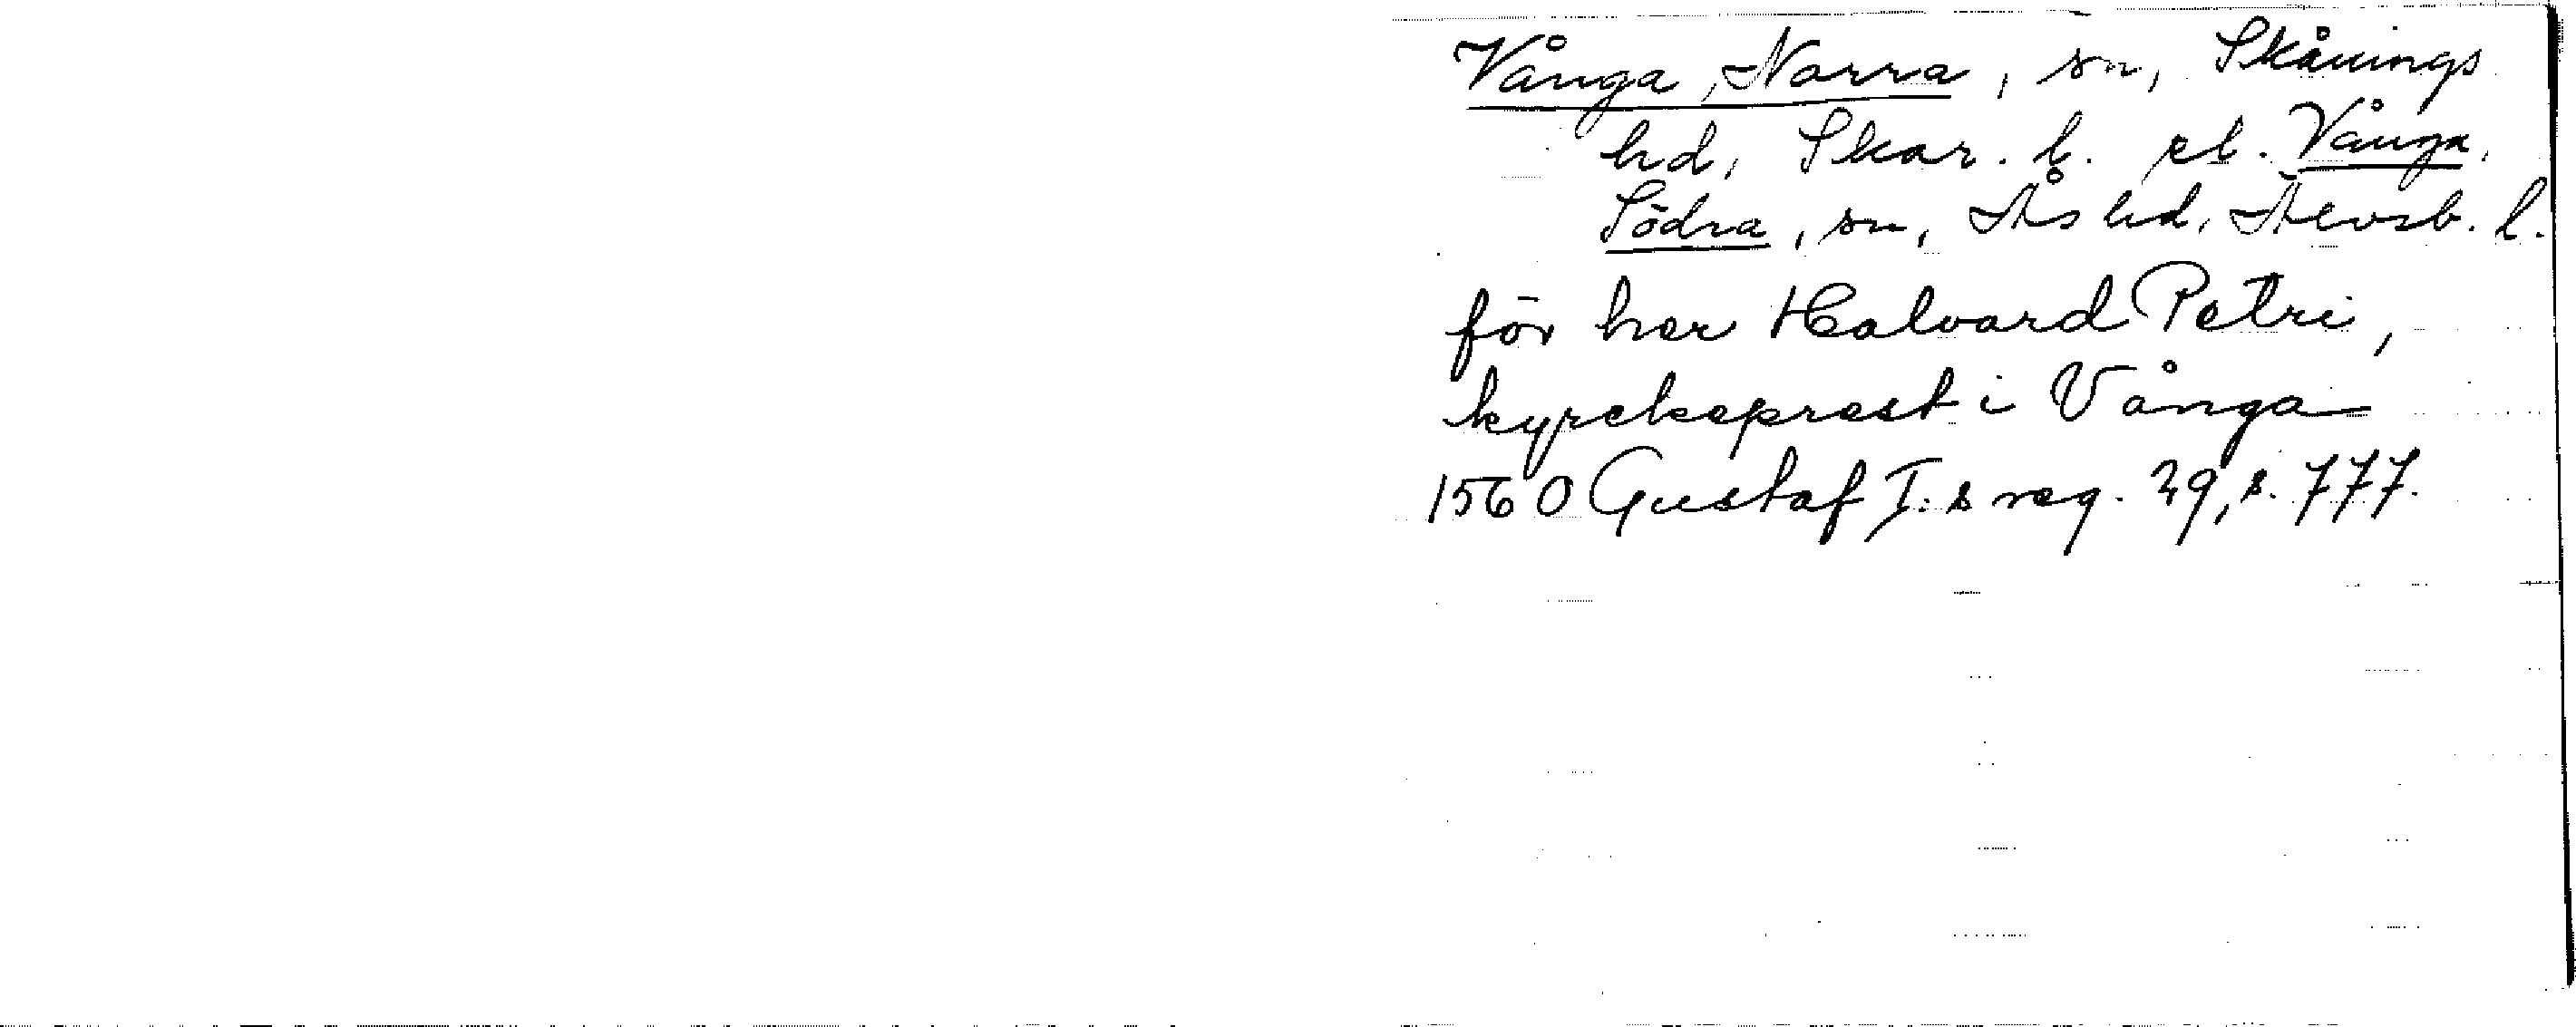 Vånga, Norra, sn, Skånings
hd, Skar. l. el. Vånga,
Södra, sn, Ås hd, Älvsb. l.
för her Halvard Petri,
kyrckeprest i Vånga
1560 Gustaf I:s reg. 29, s. 777.